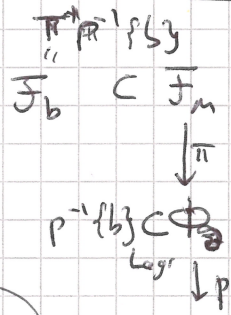 π⁻¹p⁻¹{b}
"
J̄_b ⊂ J̄_m
↓π
p⁻¹{b} ⊂
Lagr
↓p